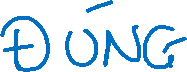 ĐÚNG